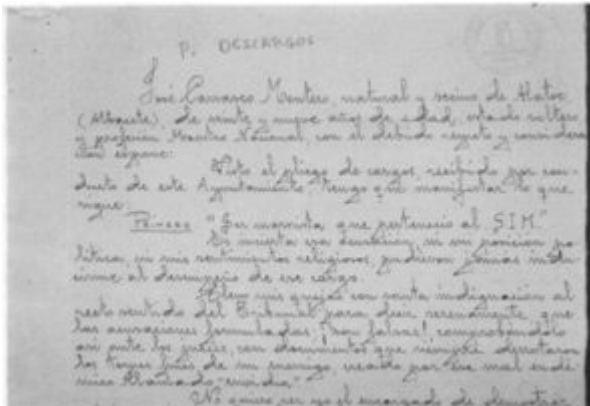 P. DESCARGOS
José Carrasco Montero, natural y vecino de Alatoz
(Albacete), de veinte y nueve años de edad, estado soltero
y profesión Maestro Nacional, con el debido respeto y considera-
ción expone:
Visto el pliego de cargos, recibido por con-
ducto de este Ayuntamiento, tengo que manifestar lo que
sigue:
Primero "Ser marxista que perteneció al SIM."
Es incierta esa acusación, ni mi posición po-
lítica, ni mis sentimientos religiosos pudieron jamás indu-
cirme al desempeño de ese cargo.
mis quejas con santa indignación al
recto sentido del Tribunal para decir serenamente, que
las acusaciones formuladas, ¡son falsas!, comprobándolo
así ante los jueces, con documentos que siempre derrotaron
los torpes fines de mi enemigo, creado por ese mal endé-
mico llamado "envidia".
No quiero ser yo el encargado de demostrar